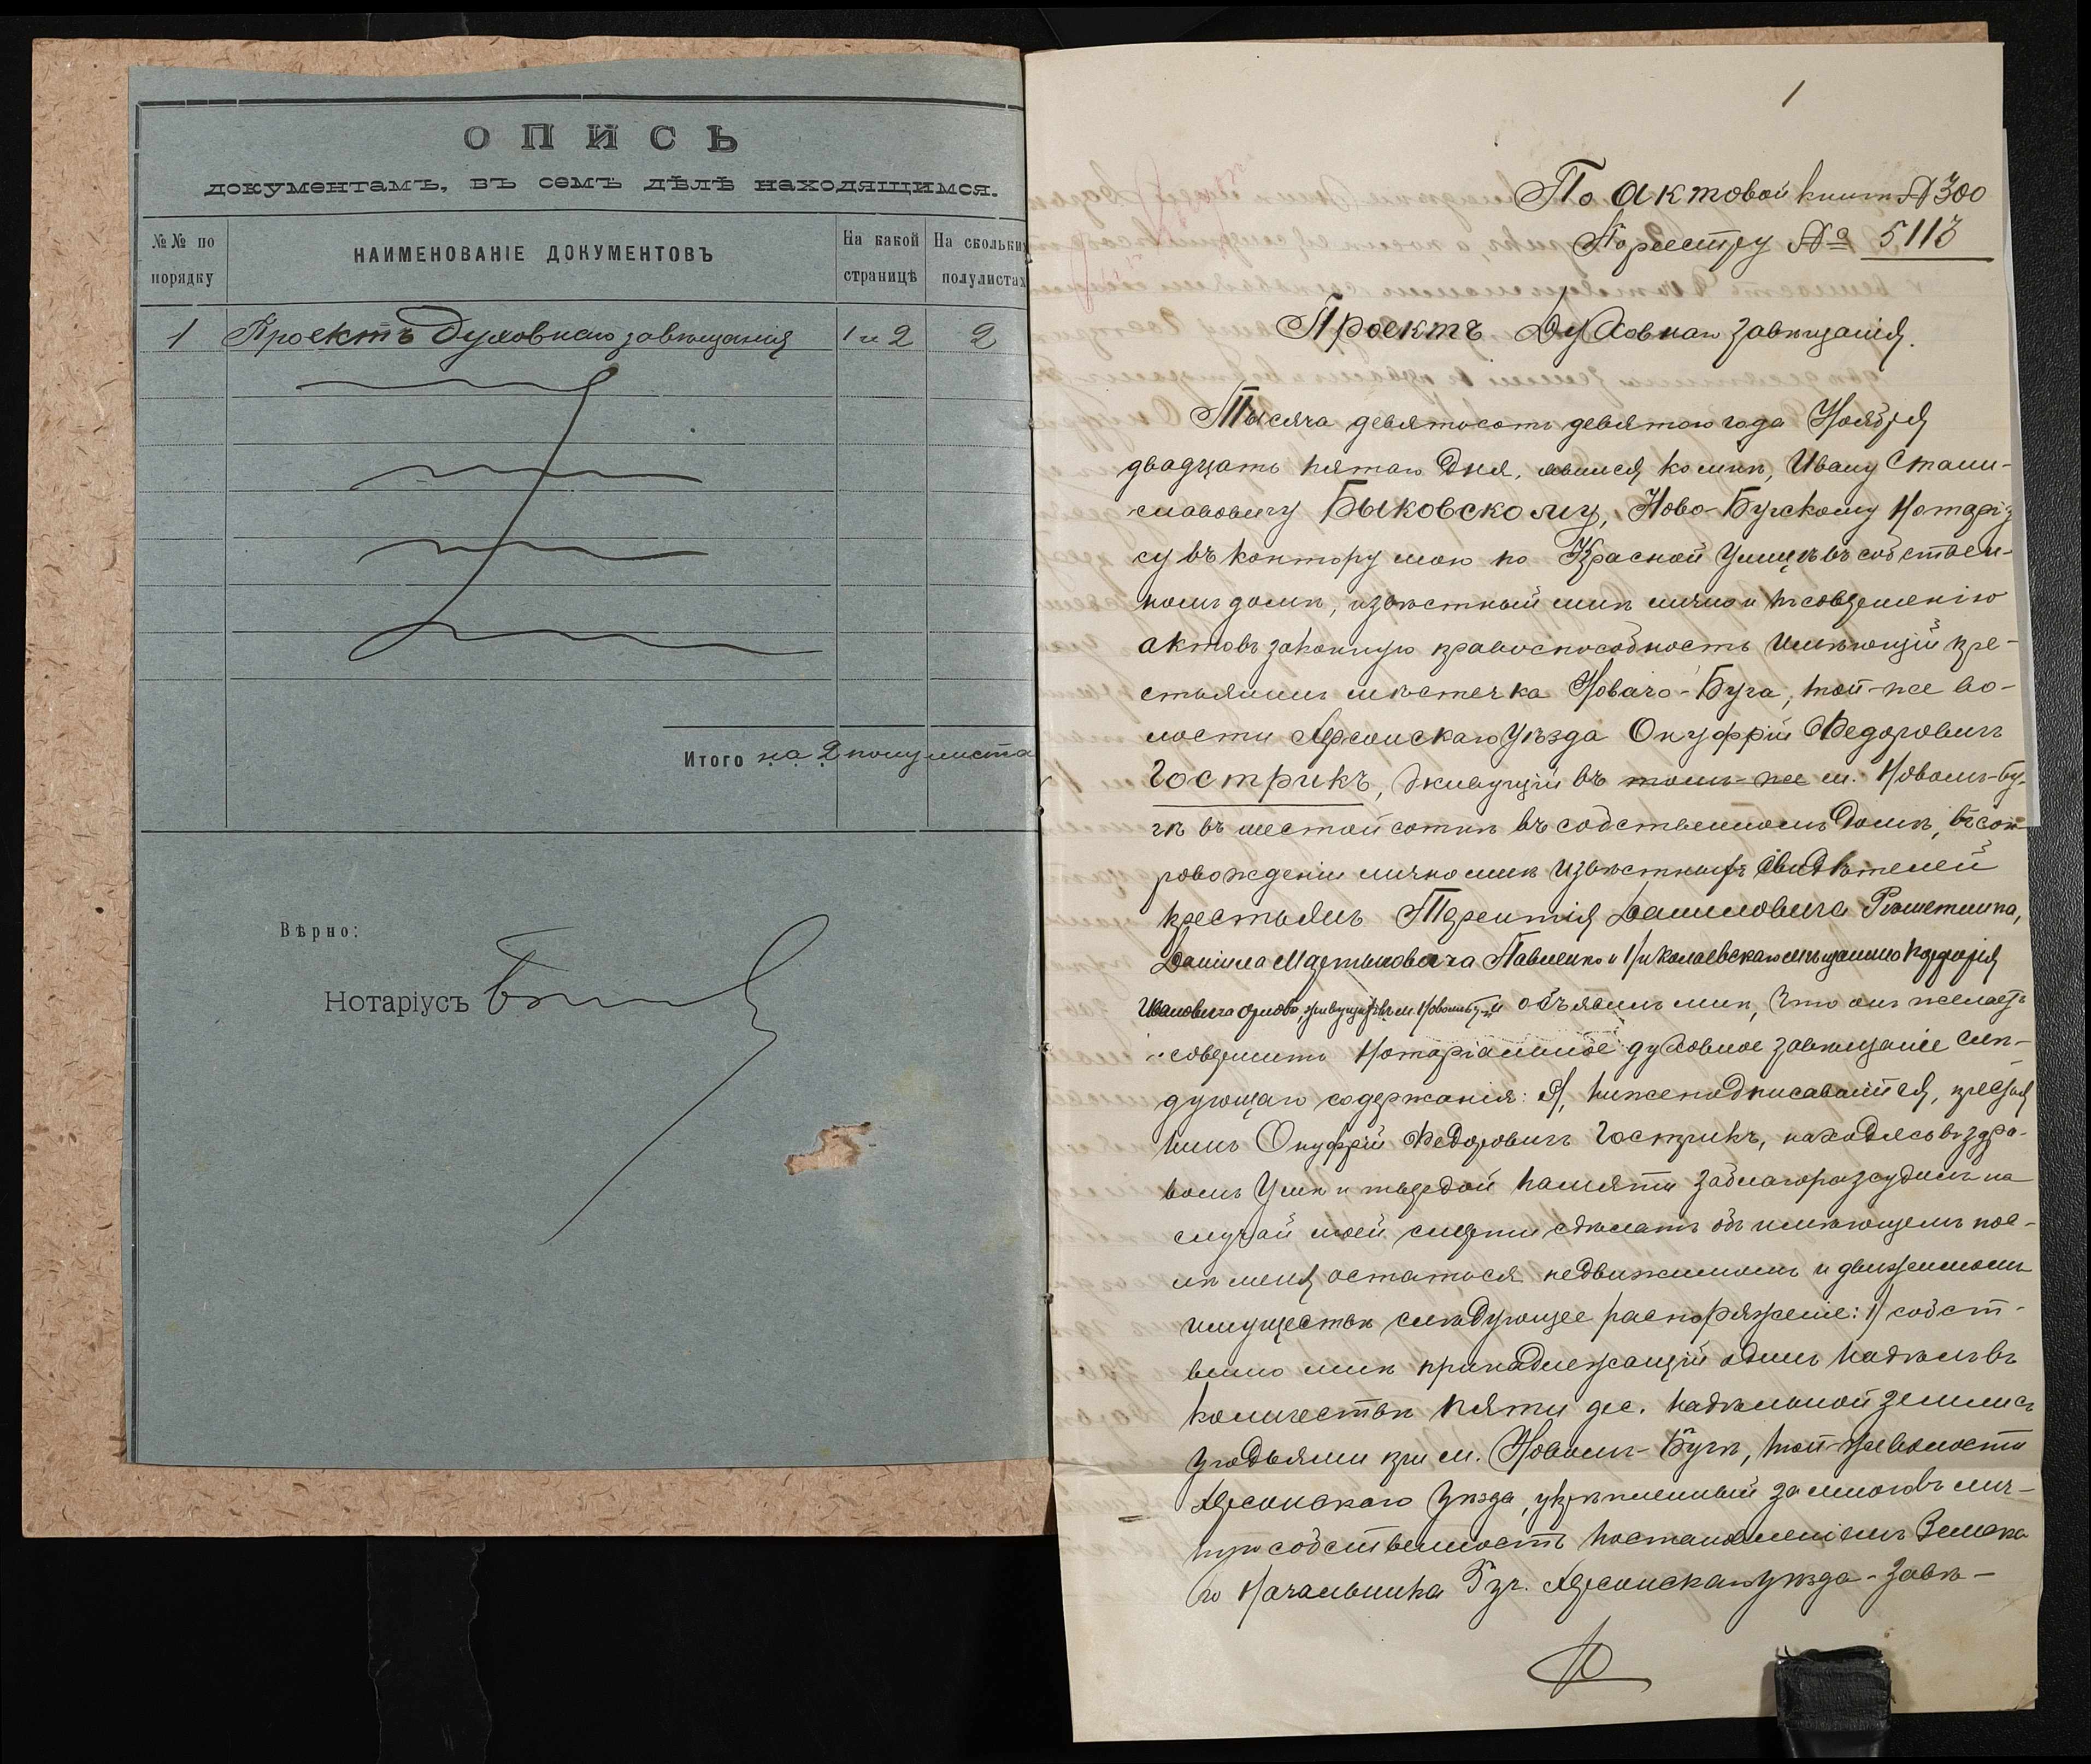 ОПИСЬ
документамъ, въ семъ дѣлѣ находящимся.
№№ по порядку
НАИМЕНОВАНІЕ ДОКУМЕНТОВЪ
На какой страницѣ
На сколькихъ полулистах
1 Проектъ духовнаго завѣщанія 1 и 2 2
Итого на 2 полулиста
Вѣрно:
Нотаріусъ
1
По актовой книгѣ № 300
По реестру № 5113
Проектъ Духовнаго завѣщанія.
Тысяча девятьсотъ девятаго года Ноября
двадцать пятаго дня, явился ко мнѣ, Ивану Стани-
славовичу Быковскому, Ново-Бугскому Нотаріу
су въ контору мою по Красной Улицѣ въ собствен-
номъ домѣ, извѣстный мнѣ лично и къ совершенію
актовъ законную правоспособность имѣющій кре-
стьянинъ мѣстечка Новаго-Буга, той-же во-
лости Херсонскаго Уѣзда Онуфрій Федоровичъ
Гострикъ, живущій въ томъ-же м. Новомъ-Бу-
гѣ въ шестой сотнѣ въ собственномъ домѣ, въ соп
ровожденіи лично мнѣ извѣстныхъ свидѣтелей
крестьянъ Терентія Даниловича Рѣшетника,
Даніила Мартыновича Павленко и Николаевскаго мѣщанина
Ивановича Орлова, живущихъ въ м. Новомъ Бугѣ и объявилъ мнѣ, что онъ желаетъ
совершить Нотаріальное духовное завѣщаніе слѣ-
дующаго содержанія: Я, нижеподписавшійся, крестья
нинъ Онуфрій Федоровичъ Гострикъ, находясь въ здра-
вомъ умѣ и твердой памяти заблагоразсудилъ на
случай моей смерти сдѣлать объ имѣющемъ пос-
лѣ меня остаться недвижимомъ и движимомъ
имуществѣ слѣдующее распоряженіе: 1) собст-
венно мнѣ принадлежащій одинъ надѣлъ въ
количествѣ пяти дес. надѣльной земли съ
угодьями при м. Новомъ-Бугѣ, той-же волости
Херсонскаго Уѣзда, укрѣпленный за мною въ лич-
ную собственность постановленіемъ Земска
го Начальника 3 уч. Херсонскаго уѣзда - завѣ-